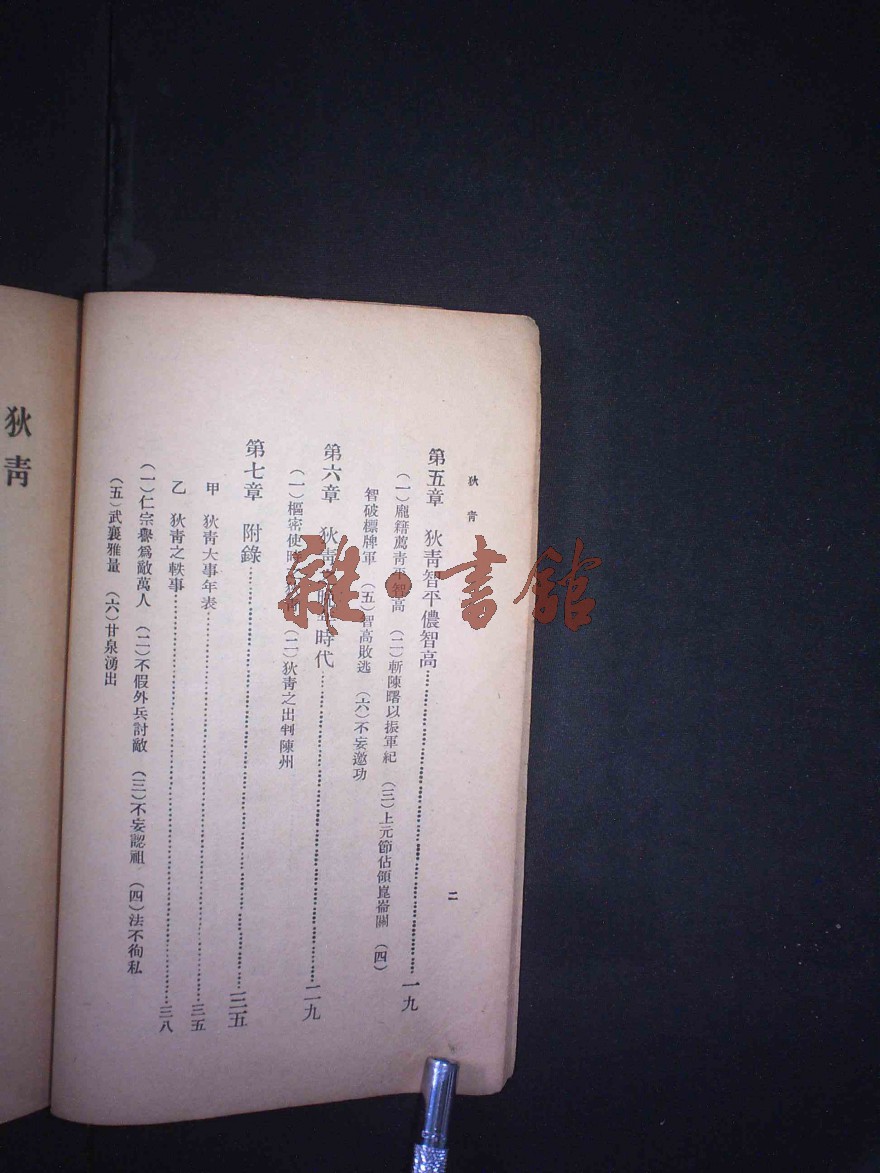 狄青
二
第五章 狄青智平儂智高……一九
（一）龐籍薦青平智高 （二）斬陳曙以振軍紀 （三）上元節佔領崑崙關 （四）
智破標牌軍 （五）智高敗逃 （六）不妄邀功
第六章 狄青 時代……二九
（一）樞密使時 （二）狄青之出判陳州
第七章 附錄……三五
甲 狄青大事年表……三五
乙 狄青之軼事……三八
（一）仁宗譽為敵萬人 （二）不假外兵討敵 （三）不妄認祖 （四）法不徇私
（五）武襄雅量 （六）甘泉湧出
狄青
雜·書館